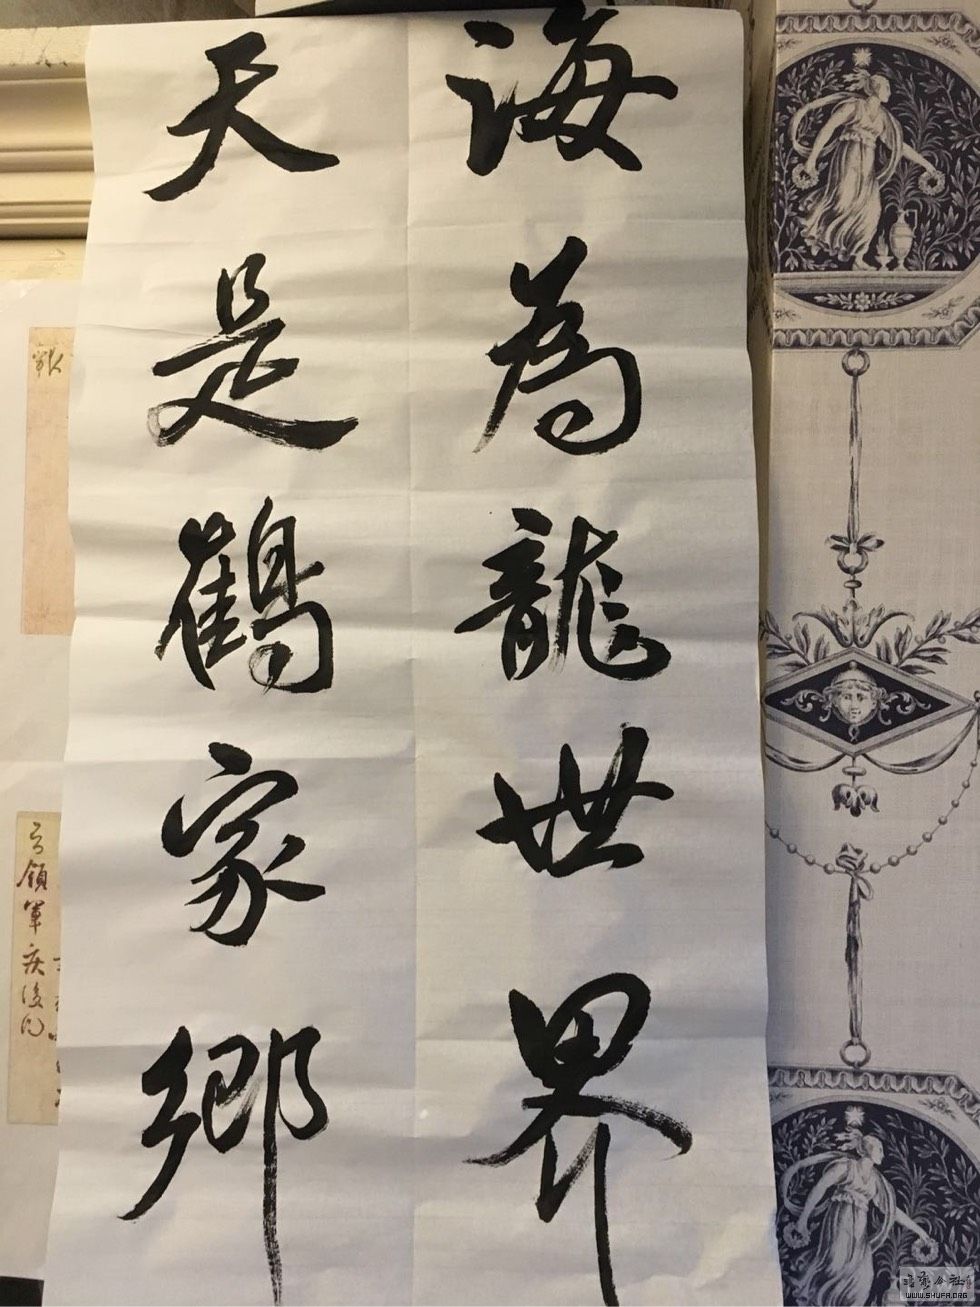 海為龍世界
天是鶴家鄉
領軍疾後
書法公社
WWW.SHUFA.ORG